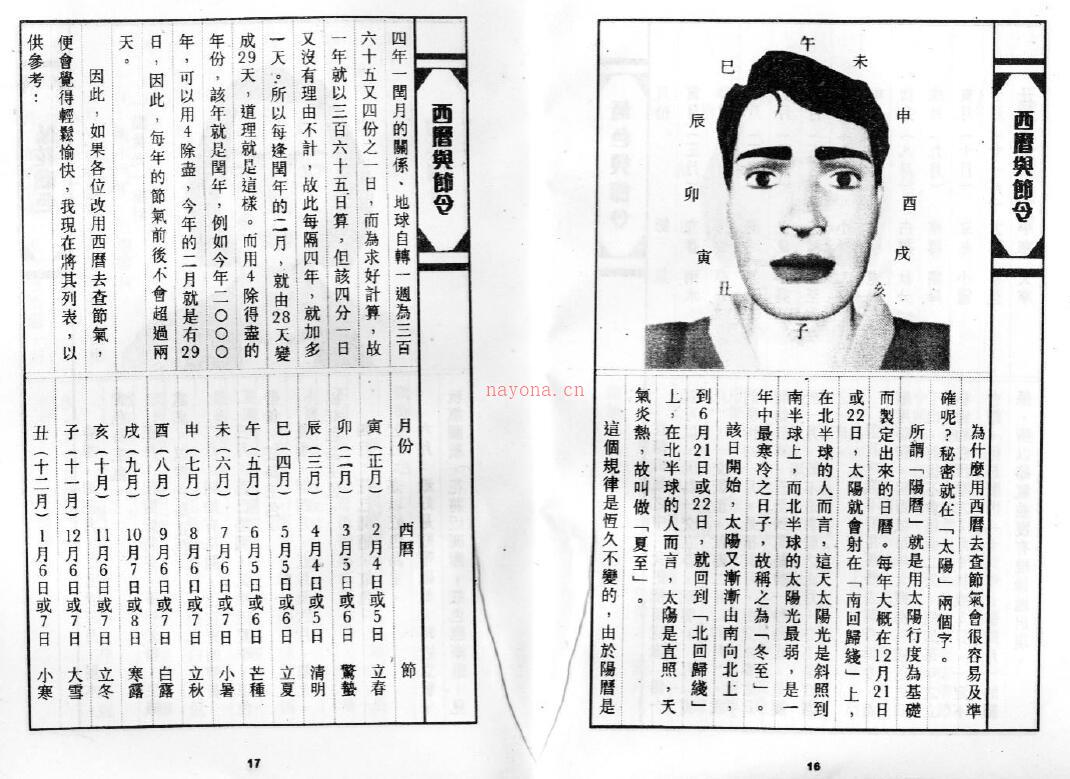 西曆與節令
午
未
巳
申
辰
酉
卯
戌
寅
亥
丑
子
為什麼用西曆去查節氣會很容易及準
確呢?秘密就在「太陽」兩個字。
所謂「陽曆」就是用太陽行度為基礎
而製定出來的日曆。每年大概在12月21日
或22日,太陽就會射在「南回歸綫」上,
在北半球的人而言,這天太陽光是斜照到
南半球上,而北半球的太陽光最弱,是一
年中最寒冷之日子,故稱之為「冬至」。
該日開始,太陽又漸漸由南向北上,
到6月21日或22日,就回到「北回歸綫」
上,在北半球的人而言,太陽是直照,天
氣炎熱,故叫做「夏至」。
這個規律是恆久不變的,由於陽曆是
16
西曆與節令
四年一閏月的關係、地球自轉一週為三百
六十五又四份之一日,而為求好計算,故
一年就以三百六十五日算,但該四分一日
又沒有理由不計,故此每隔四年,就加多
一天。所以每逢閏年的二月,就由28天變
成29天,道理就是這樣。而用4除得盡的
年份,該年就是閏年,例如今年二〇〇〇
年,可以用4除盡,今年的二月就是有29
日,因此,每年的節氣前後不會超過兩
天。
因此,如果各位改用西曆去查節氣,
便會覺得輕鬆愉快,我現在將其列表,以
供參考:
月份 西曆 節
寅(正月) 2月4日或5日 立春
卯(二月) 3月5日或6日 驚蟄
辰(三月) 4月4日或5日 清明
巳(四月) 5月5日或6日 立夏
午(五月) 6月5日或6日 芒種
未(六月) 7月6日或7日 小暑
申(七月) 8月6日或7日 立秋
酉(八月) 9月6日或7日 白露
戌(九月) 10月7日或8日 寒露
亥(十月) 11月6日或7日 立冬
子(十一月) 12月6日或7日 大雪
丑(十二月) 1月6日或7日 小寒
17
nayona.cn